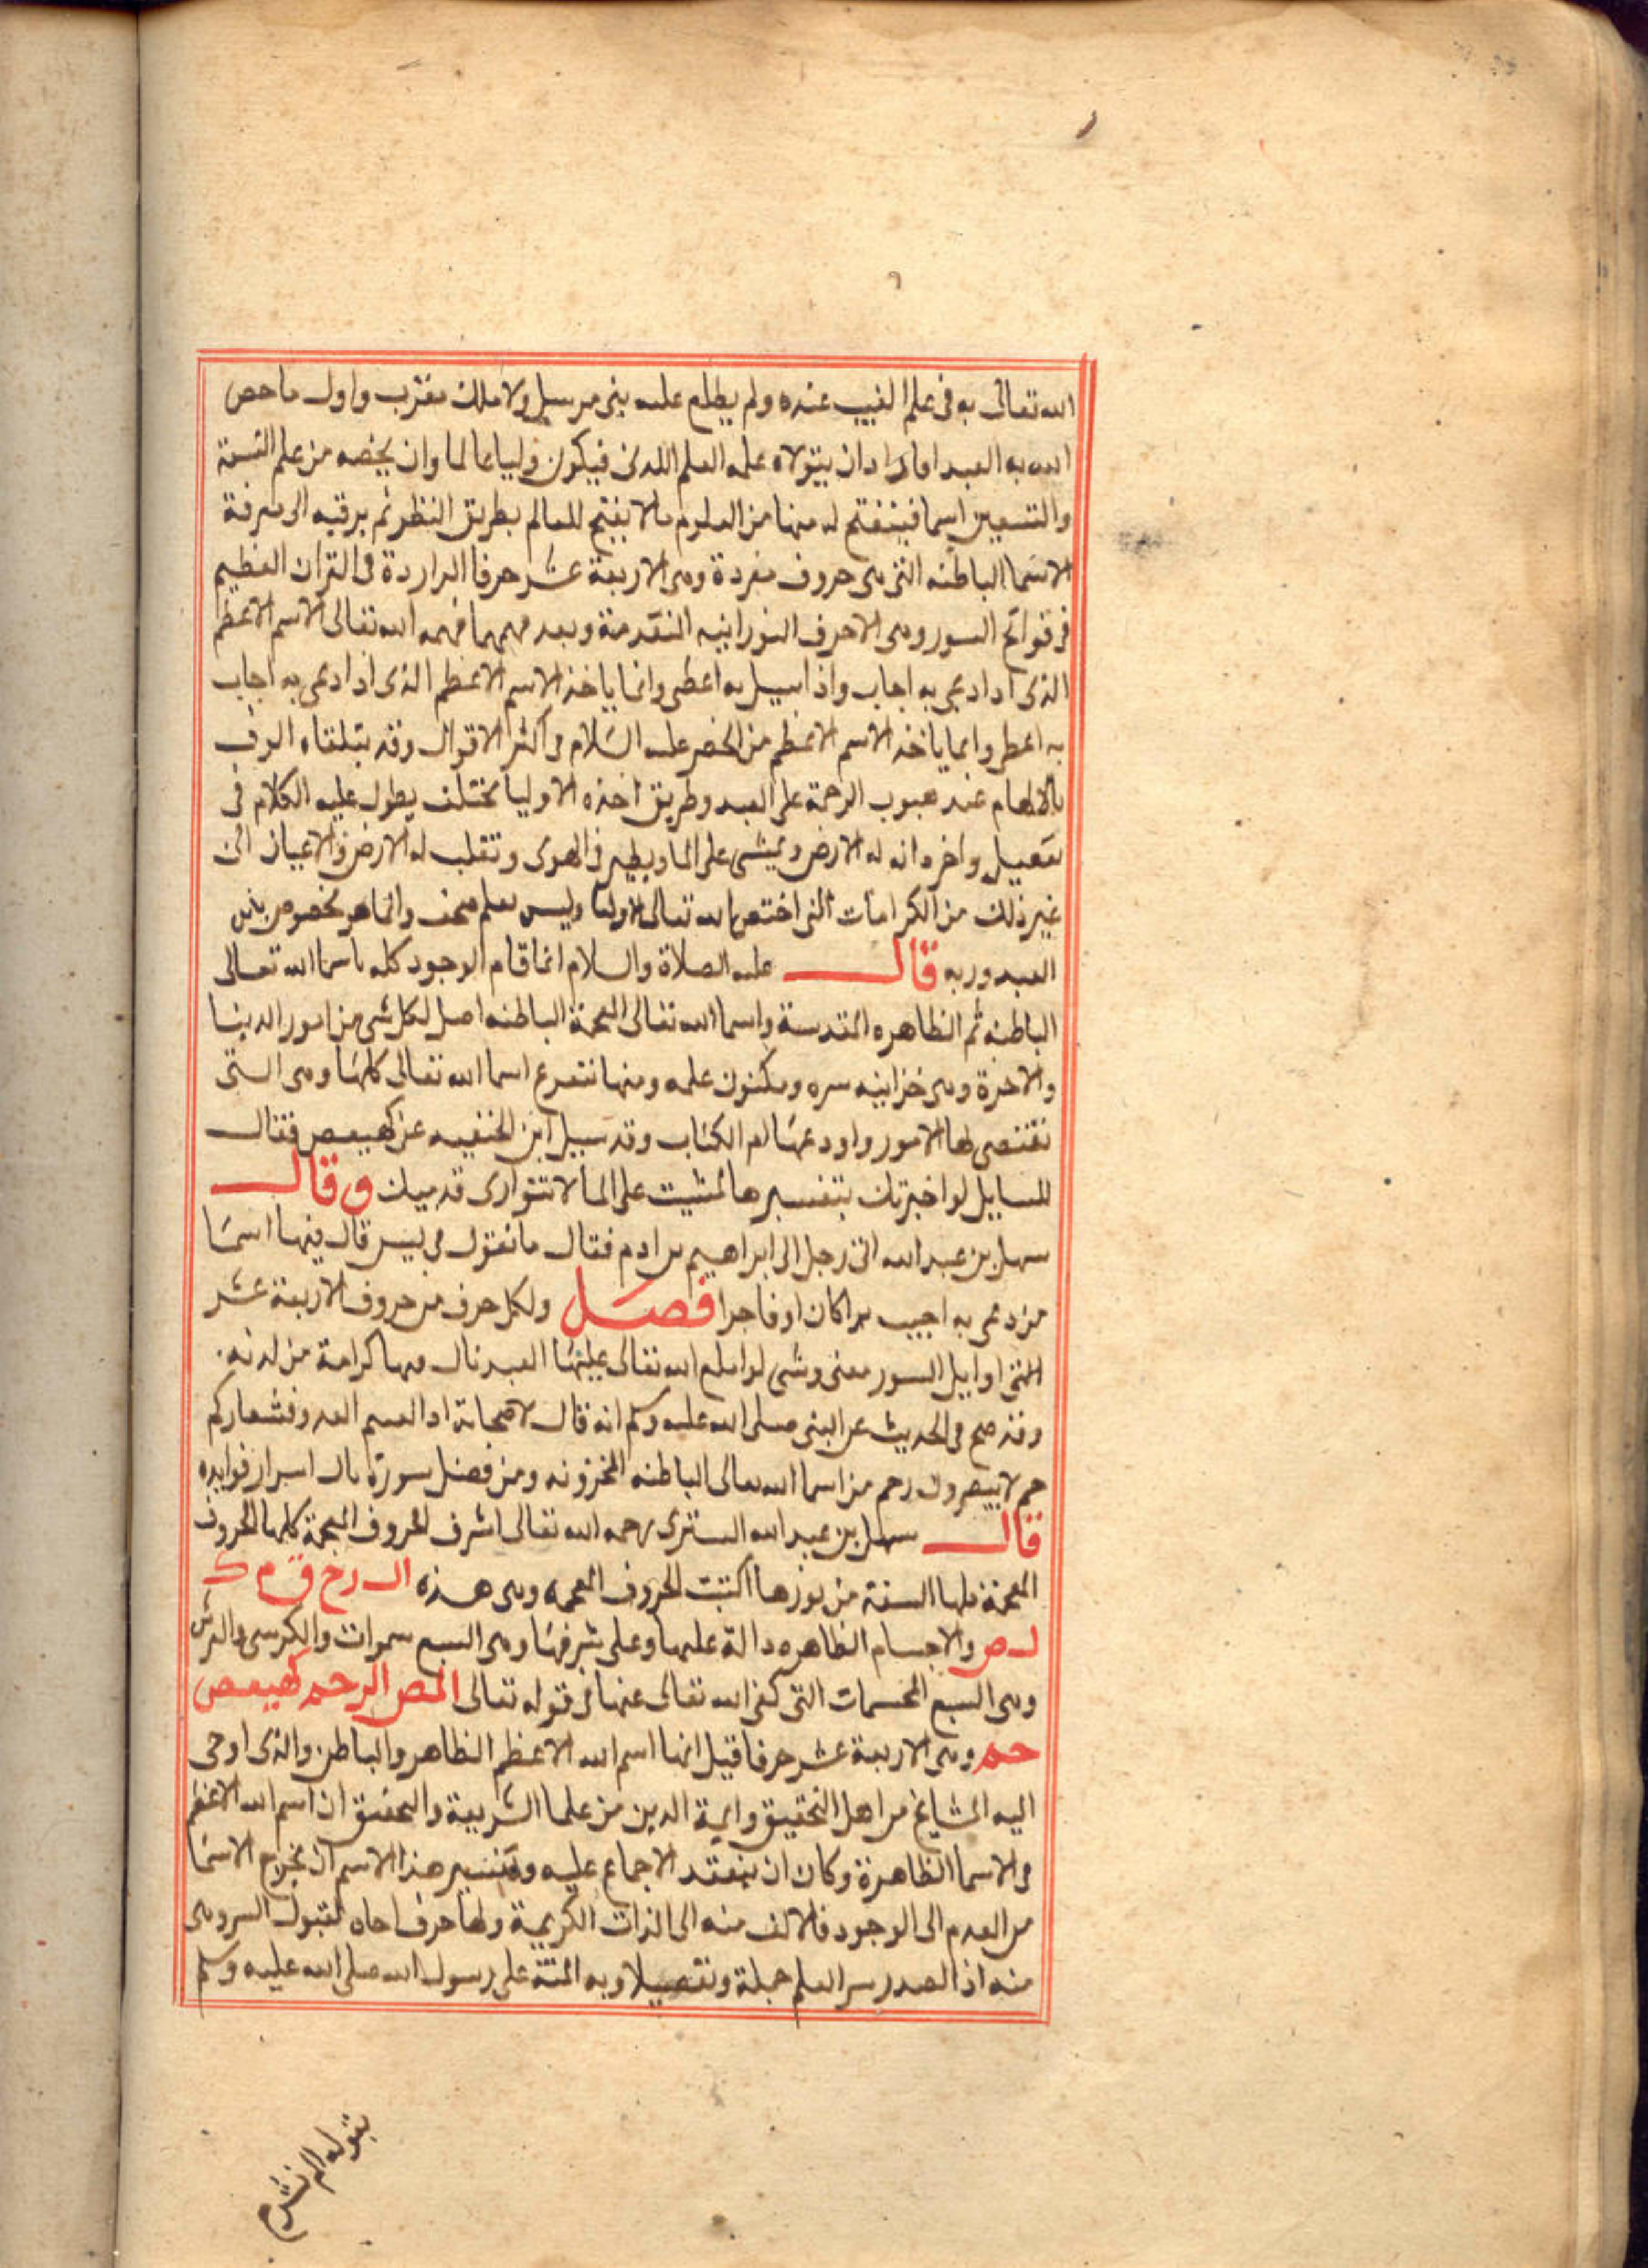 الله تعالى به فى علم الغيب عنده ولم يطلع عليه نبى مرسل ولا ملك مقرب واول ما خص
الله به العبد اذا اراد ان يتولاه علمه العلم اللدنى فيكون وليا عالما وان يخصه من علم التسعة
والتسعين اسما فينفتح له منها من العلوم ما لا يفتح للعالم بطريق النظر ثم يرقيه الى معرفة
الاسما الباطنه التى هى حروف مفردة وهى الاربعة عشر حرفا الواردة فى القران العظيم
فى فواتح السور وهى الاحرف النورانيه المتقدمة وبعد فهمها فهمه الله تعالى الاسم الاعظم
الذى اذا دعى به اجاب واذا سيل به اعطى وانما ياخذ الاسم الاعظم الذى اذا دعى به اجاب
به اعطى وانما ياخذ الاسم الاعظم من الخضر عليه السلام فى اكثر الاقوال وقد يتلقاه
بالالهام عند هبوب الرحمة على العبد وطريق اخذه الاوليا مختلف يطول عليه الكلام فى
تفصيل واخر دانه له الارض ويمشى على الما ويطير فى الهوى وتنقلب له الارض والاعيان الى
غير ذلك من الكرامات التى اختص بها الله تعالى الاوليا وليس بعلم صحف وانما هو مخصوص بين
العبد وربه قال عليه الصلاة والسلام انما قام الوجود كله باسما الله تعالى
الباطنه ثم الظاهره المقدسة واسما الله تعالى المعجمة الباطنه اصل لكل شى من امور الدنيا
والاخرة وهى خزاينه سره ومكنون علمه ومنها تتفرع اسما الله تعالى كلها وهى التى
تقتضى لها الامور واودعها ام الكتاب وقد سيل ابن الحنفيه عن كهيعص فقال
للسايل لو اخبرتك بتفسيرها لمشيت على الما لا تتوارى قدميك وقال
سهل بن عبد الله اتى رجل الى ابراهيم بن ادم فقال ما تقول فى يس قال فيها اسما
من دعى به اجيب برا كان او فاجرا فصل ولكل حرف من حروف الاربعة عشر
التى اوايل السور معنى وشى لو اطلع الله تعالى عليها العبد نال بها كرامة من لدنه
وقد صح فى الحديث عن النبى صلى الله عليه وسلم انه قال لاصحابة اذا لقيتم العدو فشعاركم
حم لا ينصرون وحم من اسما الله تعالى الباطنه المخزونه ومن فضل سورة اسرار فوايده
قال سهل بن عبد الله التسترى رحمه الله تعالى اشرف الحروف المعجمة كلها الحروف
المعجمة السنة من نورها اكتبت الحروف المعجمه وهى هذه ال ر خ ق م ك
ل ص والاجسام الظاهره دالة عليها وعلى شرفها وهى السبع سموات والكرسى والعرش
وهى السبع المجسمات التى كنى الله تعالى عنها فى قوله تعالى المص الر حم كهيعص
حم وهى الاربعة عشر حرفا قيل انها اسم الله الاعظم الظاهر والباطن والذى اوحى
اليه المشايخ من اهل التحقيق وايمة الدين من علما الشريعة والتحقيق ان اسم الله الاعظم
فى الاسما الظاهرة وكان ان ينعقد الاجماع عليه وتفسير هذا الاسم ان يخرج الاسما
من العدم الى الوجود فالالف منه الى الذات الكريمة ولها حرف لقبول السر وهى
منه اذ الصدر سر العلم جملة وتفصيلا وبه المنة على رسول الله صلى الله عليه وسلم
بقوله الم نشرح